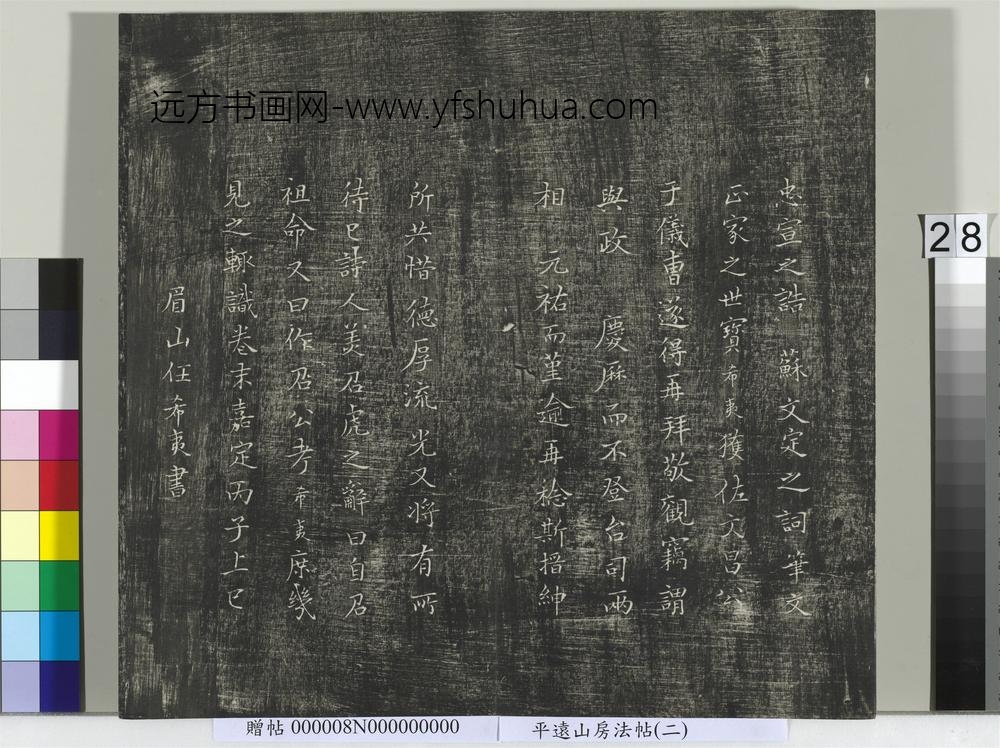 远方书画网-www.yfshuhua.com
忠宣之誥蘇文定之詞筆文
正家之世寶希夷獲佐文昌公
于儀曹遂得再拜敬觀竊謂
與政慶厤而不登台司兩
相元祐而堇逾再稔斯搢紳
所共惜德厚流光又將有所
待已詩人美召虎之辭曰自召
祖命又曰作召公考希夷庶幾
見之輒識卷末嘉定丙子上巳
眉山任希夷書
28
贈帖 000008N000000000
平遠山房法帖(二)